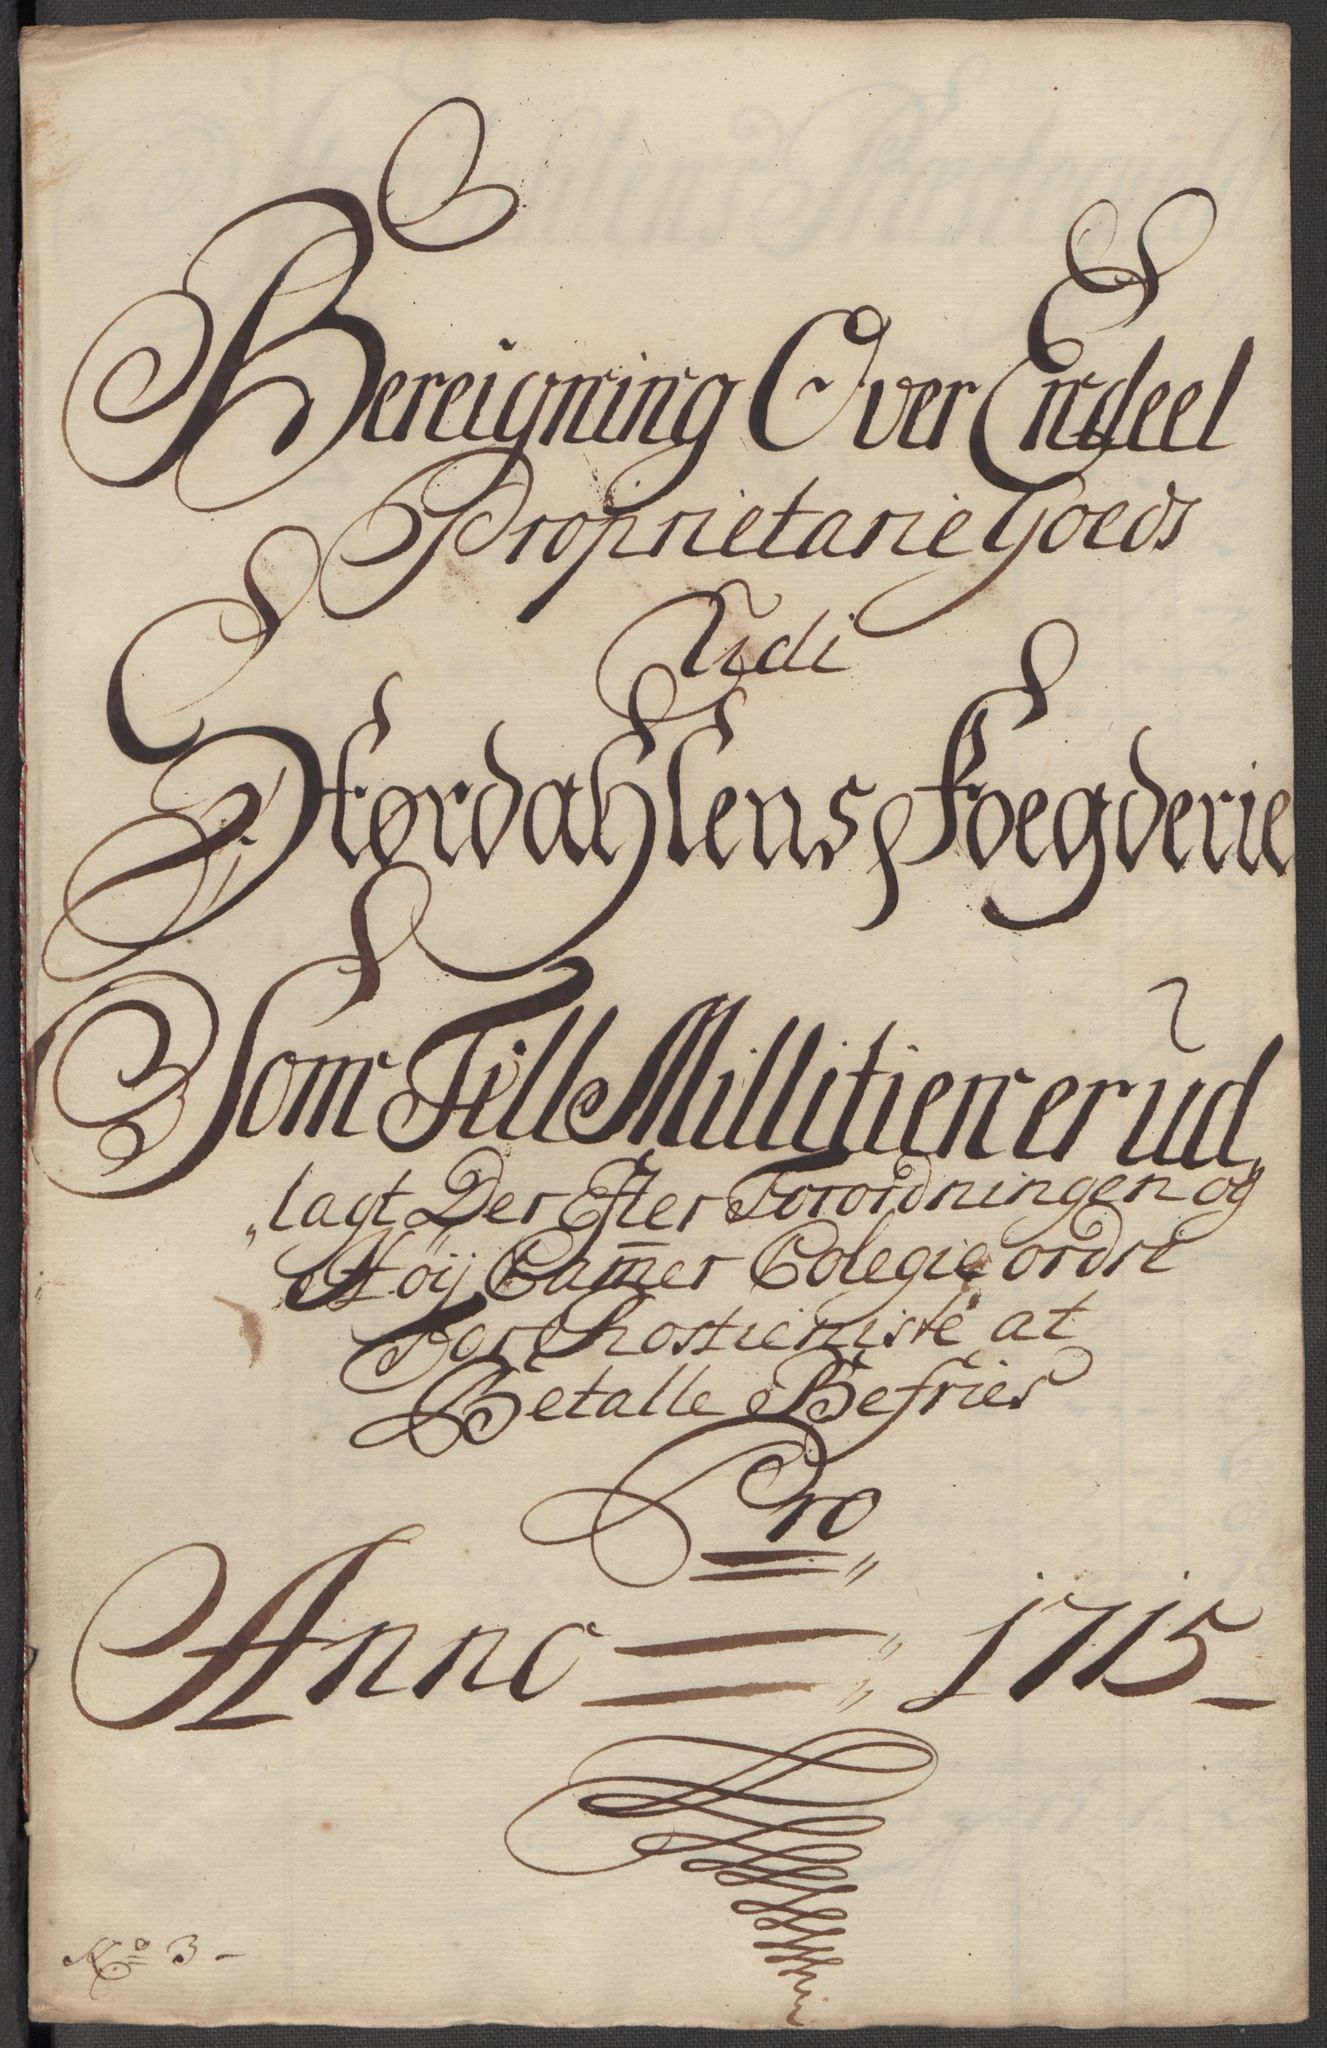 Bereigning Over Endeel
Proprietarie Goeds
Udi
Størdahlens Foegderie
Som Till Millitien er ud„
„lagt Der Efter Forordningen og
Høy Cam̅er Colegie ordre
For Rostieniste at
Betalle Befries
Pro
Anno 1715
No 3